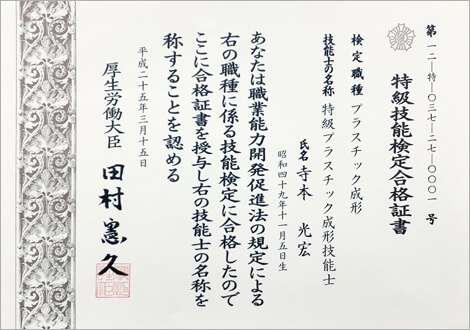 第一二―特―〇三七―二七―〇〇〇一号
特級技能検定合格証書
検定職種 プラスチック成形
技能士の名称 特級プラスチック成形技能士
氏名 寺本 光宏
昭和四十九年十一月五日生
あなたは職業能力開発促進法の規定による
右の職種に係る技能検定に合格したので
ここに合格証書を授与し右の技能士の名称を
称することを認める
平成二十五年三月十五日
厚生労働大臣 田村憲久